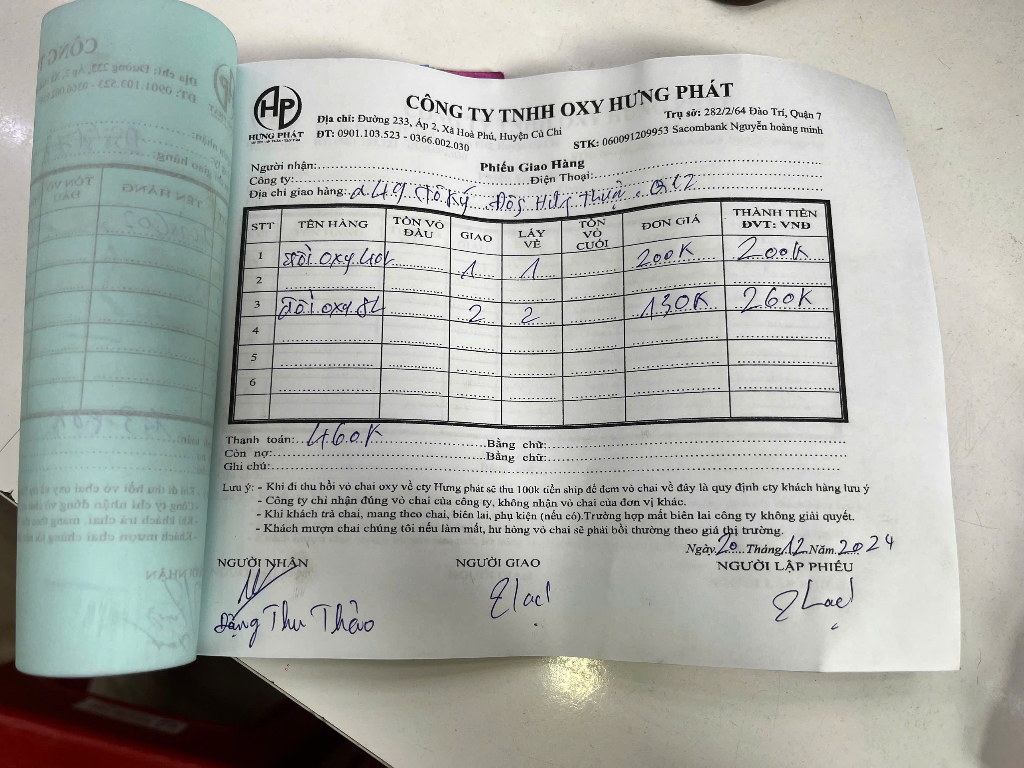 HP
HƯNG PHÁT
CÔNG TY TNHH OXY HƯNG PHÁT
Địa chỉ: Đường 233, Ấp 2, Xã Hoà Phú, Huyện Củ Chi
Trụ sở: 282/2/64 Đào Trí, Quận 7
ĐT: 0901.103.523 - 0366.002.030
STK: 060091209953 Sacombank Nguyễn hoàng minh
Phiếu Giao Hàng
Người nhận:
Công ty: Điện Thoại:
Địa chỉ giao hàng: 249 Tô Ký Đông Hưng Thuận Q12
STT TÊN HÀNG TỒN VỎ ĐẦU GIAO LẤY VỀ TỒN VỎ CUỐI ĐƠN GIÁ THÀNH TIỀN ĐVT: VNĐ
1 đổi oxy 40L 1 1 200K 200K
2
3 đổi oxy 8L 2 2 130K 260K
4
5
6
Thanh toán: 460K Bằng chữ:
Còn nợ: Bằng chữ:
Ghi chú:
Lưu ý: - Khi đi thu hồi vỏ chai oxy về cty Hưng phát sẽ thu 100k tiền ship để đem vỏ chai về đây là quy định cty khách hàng lưu ý
- Công ty chỉ nhận đúng vỏ chai của công ty, không nhận vỏ chai của đơn vị khác.
- Khi khách trả chai, mang theo chai, biên lai, phụ kiện (nếu có).Trường hợp mất biên lai công ty không giải quyết.
- Khách mượn chai chúng tôi nếu làm mất, hư hỏng vỏ chai sẽ phải bồi thường theo giá thị trường.
Ngày 20 Tháng 12 Năm 2024
NGƯỜI NHẬN NGƯỜI GIAO NGƯỜI LẬP PHIẾU
Đặng Thu Thảo